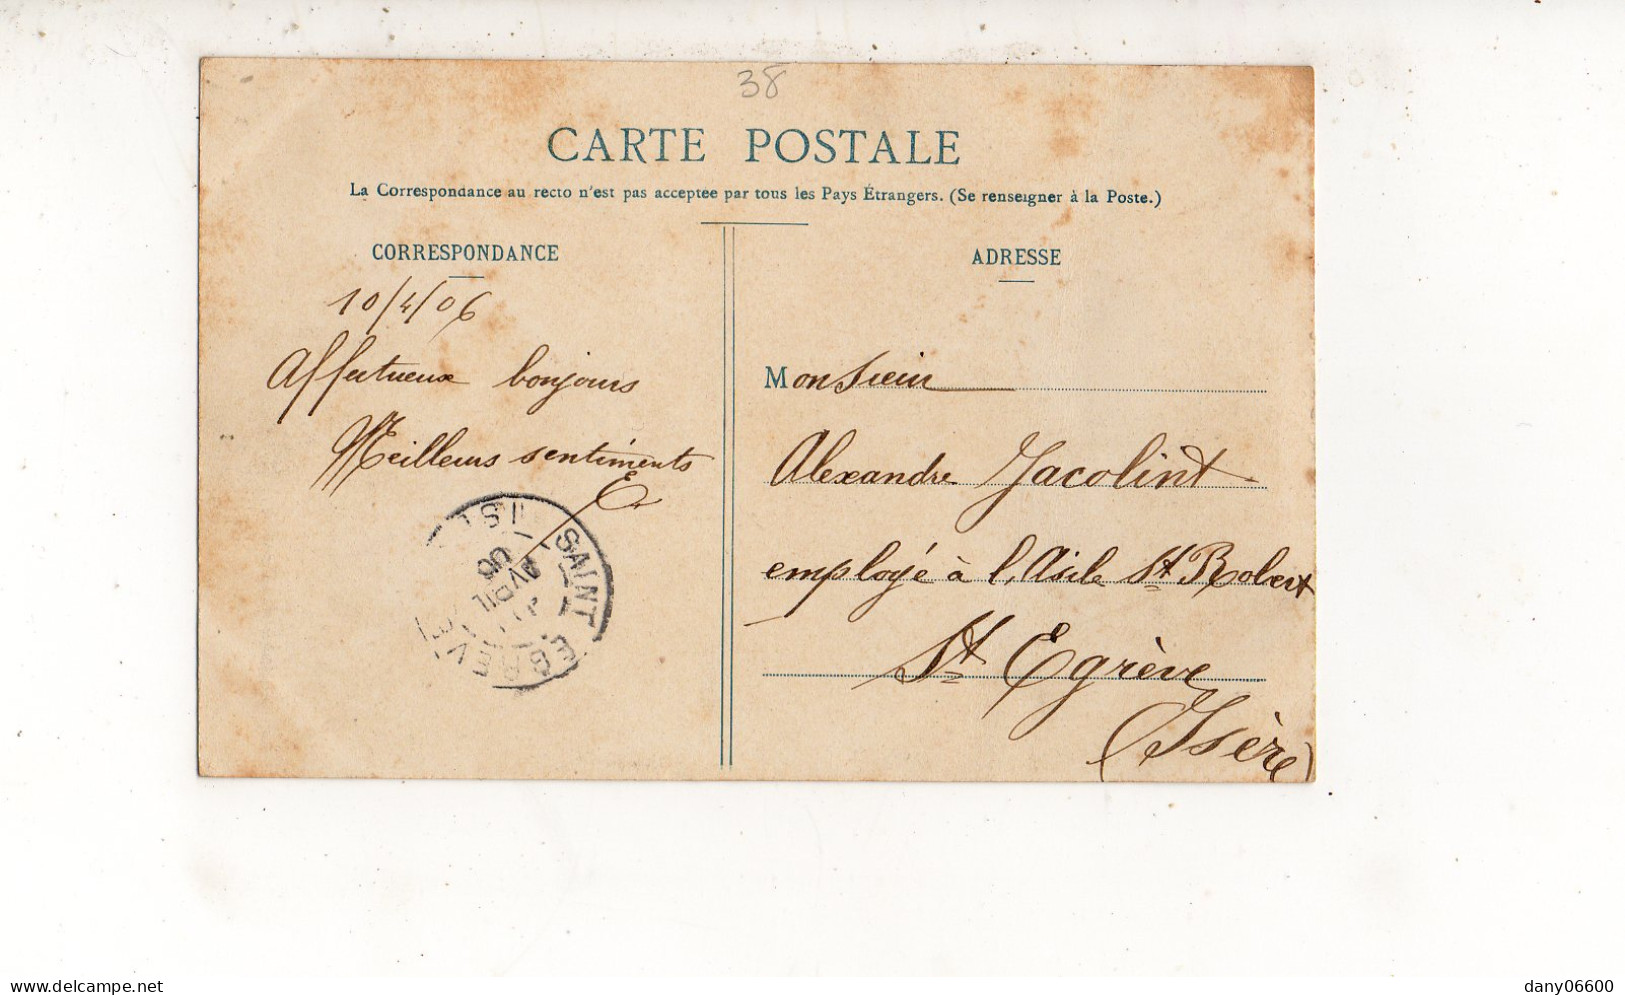 38
CARTE POSTALE
La Correspondance au recto n'est pas acceptée par tous les Pays Étrangers. (Se renseigner à la Poste.)
CORRESPONDANCE
10/4/06
Affectueux bonjours
Meilleurs sentiments
E
SAINT EGREVE
AVRIL
06
ADRESSE
Monsieur
Alexandre Jacolint
employé à l'Asile St Robert
St Egrève
(Isère)
delcampe.net
dany06600